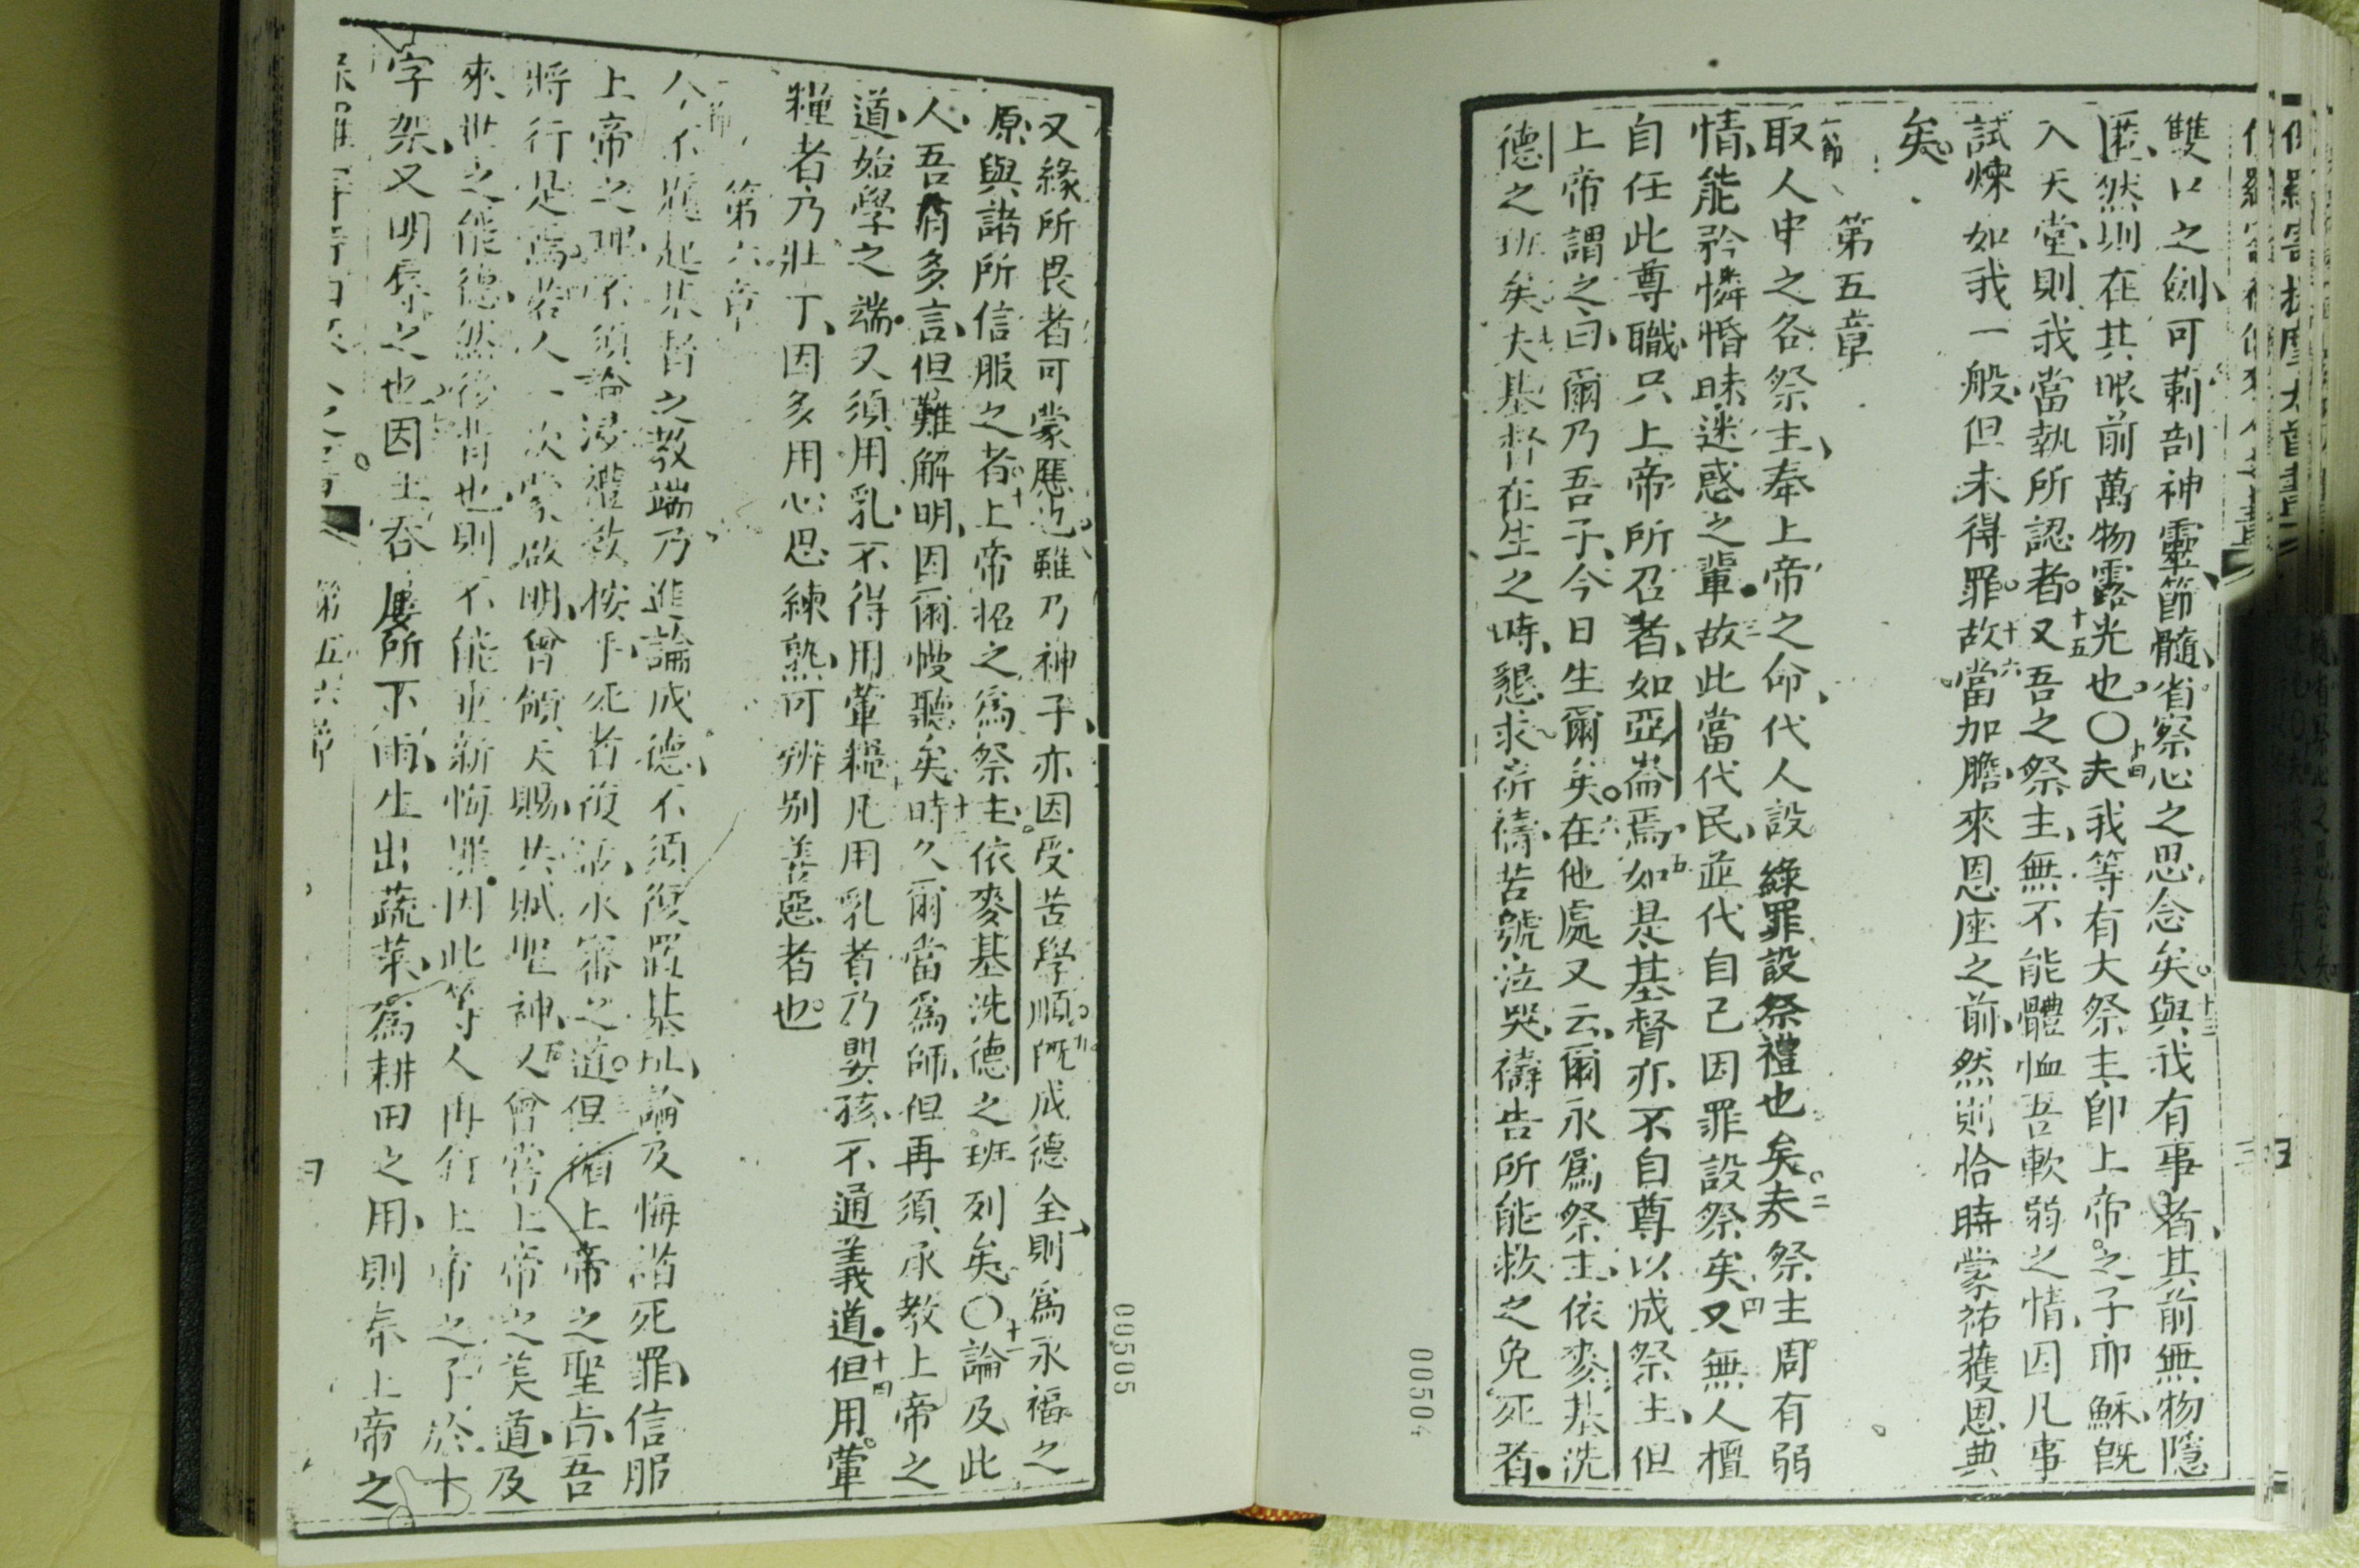 雙口之劍、可刺剖神靈節髓、省察心之思念矣。十三與我有事者、其前無物隱
匿、然則在其眼前萬物露光也。〇十四夫我等有大祭主、卽上帝之子耶穌、旣
入天堂、則我當執所認者。十五又吾之祭主、無不能體恤吾軟弱之情、因凡事
試煉如我一般、但未得罪。十六故當加膽、來恩座之前、然則恰時蒙祐獲恩典
矣。
第五章
一節
取人中之各祭主、奉上帝之命、代人設 緣罪設祭禮也矣。二夫祭主周有弱
情、能矜憐惛昧迷惑之輩。三故此當代民、並代自己因罪設祭矣。四又無人擅
自任此尊職、只上帝所召者、如亞崙焉。五如是基督亦不自尊以成祭主、但
上帝謂之曰、爾乃吾子、今日生爾矣。六在他處又云、爾永爲祭主、依麥基洗
德之班矣。七夫基督在生之時、懇求祈禱、苦號泣哭、禱告所能救之免死者。
又緣所畏者可蒙應也。八雖乃神子、亦因受苦學順。九旣成德全、則爲永福之
原、與諸所信服之者。十上帝招之爲祭主、依麥基洗德之班列矣。〇十一論及此
人、吾有多言、但難解明、因爾慢聽矣。十二時久爾當爲師、但再須承教上帝之
道、始學之端。又須用乳、不得用葷糧。十三凡用乳者、乃嬰孩、不通義道。十四但用葷
糧者、乃壯丁、因多用心思練熟、可辨別善惡者也。
第六章
一節
今不題起基督之教端、乃進論成德、不須復置基址、論及悔諸死罪、信服
上帝之理、不須論浸禮教、按手、死者復活、永審之道。但循上帝之聖旨、吾
將行是焉。若人一次蒙啟明、曾領天賜、共賦聖神、五又曾嘗上帝之美道、及
來世之能德、然後背也、則不能更新悔罪。因此等人再釘上帝之子於十
字架、又明辱之也。因土吞屢所下雨、生出蔬菜、爲耕田之用、則奉上帝之
第五六章
00505
00504